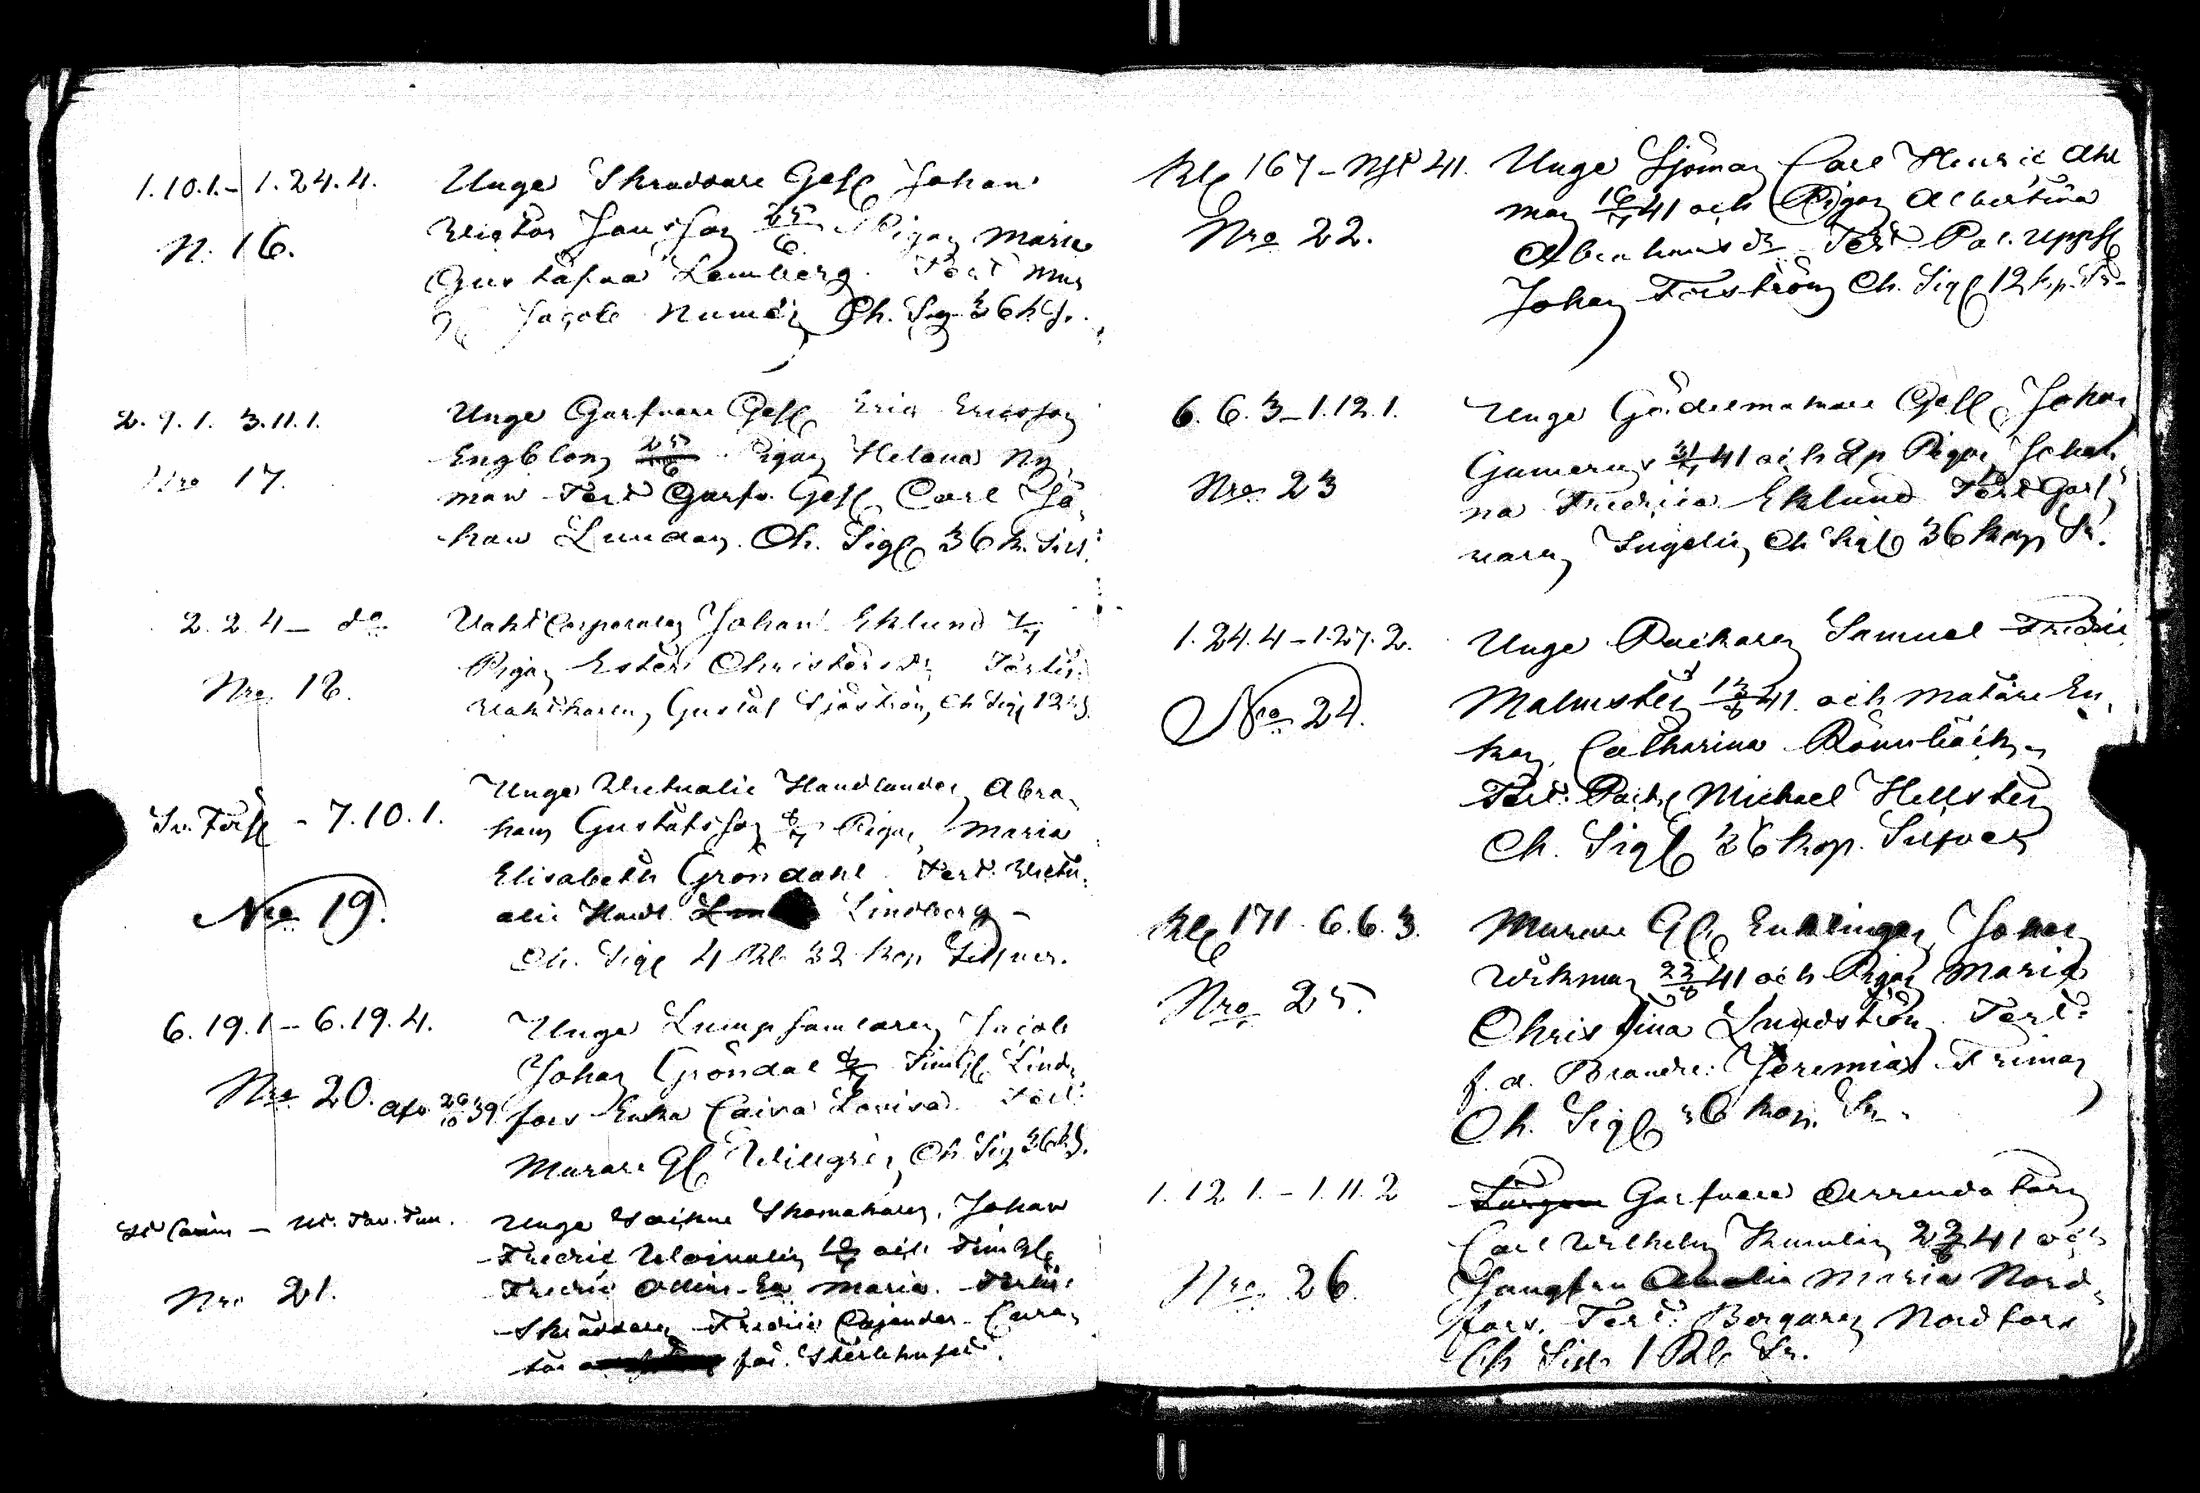 1.10.1.- 1.24.4.
N. 16.
Unge Skraddare Gesl Johan
Victor Jansson 25/6 Pigan Maria
Gustafva Lemberg. Fört Mur
Gl Jacob Numelin Ch. Sig 36 k S.
2.9.1. 3.11.1.
Nro 17.
Unge Garfvare Gesl Eric Ericsson
Engblom 25/6 Pigan Helena Ny
man Fört Garfv. Gesl Carl Jo
han Lundan. Ch. Sigl 36 k. Silf:
2.2.4 - do
Nro 18.
Vakt Corporalen Johan Eklund
Pigan Ester Christersdr Förtr:
Vaktkarlen Gustaf Sjöström Ch Sigl 12 k S.
Sv. Förs - 7.10.1.
Nro 19.
Unge Victualie Handlanden Abra
ham Gustafsson Pigan Maria
Elisabeth Gröndahl Fört. Victu
alie Handl. Lindberg -
Ch. Sigl 4 Rbl 32 kop Silfver.
6.19.1 - 6.19.4.
Nro 20. Afv 39
Unge Lumpsamlaren Jacob
Johan Gröndal Timgl. Lind
fors Enka Caisa Lovisa. Fört:
Murare Gl Willgren Ch Sig 36 k S.
Nro 21.
Unge Skomakaren Johan
Fredric 12/7 och Timgl.
Fredric Enka Maria. Förtr:
Skräddaren Fredric Cajander. Cura
tor för Sterbhuset.
Kl 167 - Nft 41.
Nro 22.
Unge Sjöman Carl Henric Ahl
man 16/7 41 och Pigan Albertina
Abrahamsdr Fört. Pol. Uppsl
Johan Forsström Ch. Sigl 12 kp. Sr
6.6.3 - 1.12.1.
Nro 23
Unge Gördelmakare Gesll Johan
Gumerus 31/7 41 och dp Pigan Johan
na Fredrica Eklund Fört Garf
varen Ingelin Ch Sigl 36 kop Sr.
1.24.4 - 1.27.2.
Nro 24.
Unge Packaren Samuel Fredric
Malmsten 12/8 41. och Matare En
kan, Catharina Rönnbäck
Fört. Pack Michael Hellsten
Ch. Sigl 36 kop. Silfver
Kl 171 6.6.3.
Nro 25.
Murare Gl Enklingen Johan
Wikman 22/8 41 och Pigan Maria
Christina Lundström Fört:
f.d. Brandr: Jeremias Friman
Ch. Sigl 36 kop. Sr.
1.12.1. - 1.11.2
Nro 26.
Garfvare Arrendatorn
Carl Wilhelm Humlin 23/8 41 och
Jungfru Amalia Maria Nord
fors. Fört: Borgaren Nordfors
Ch Sigl 1 Rbl Sr.